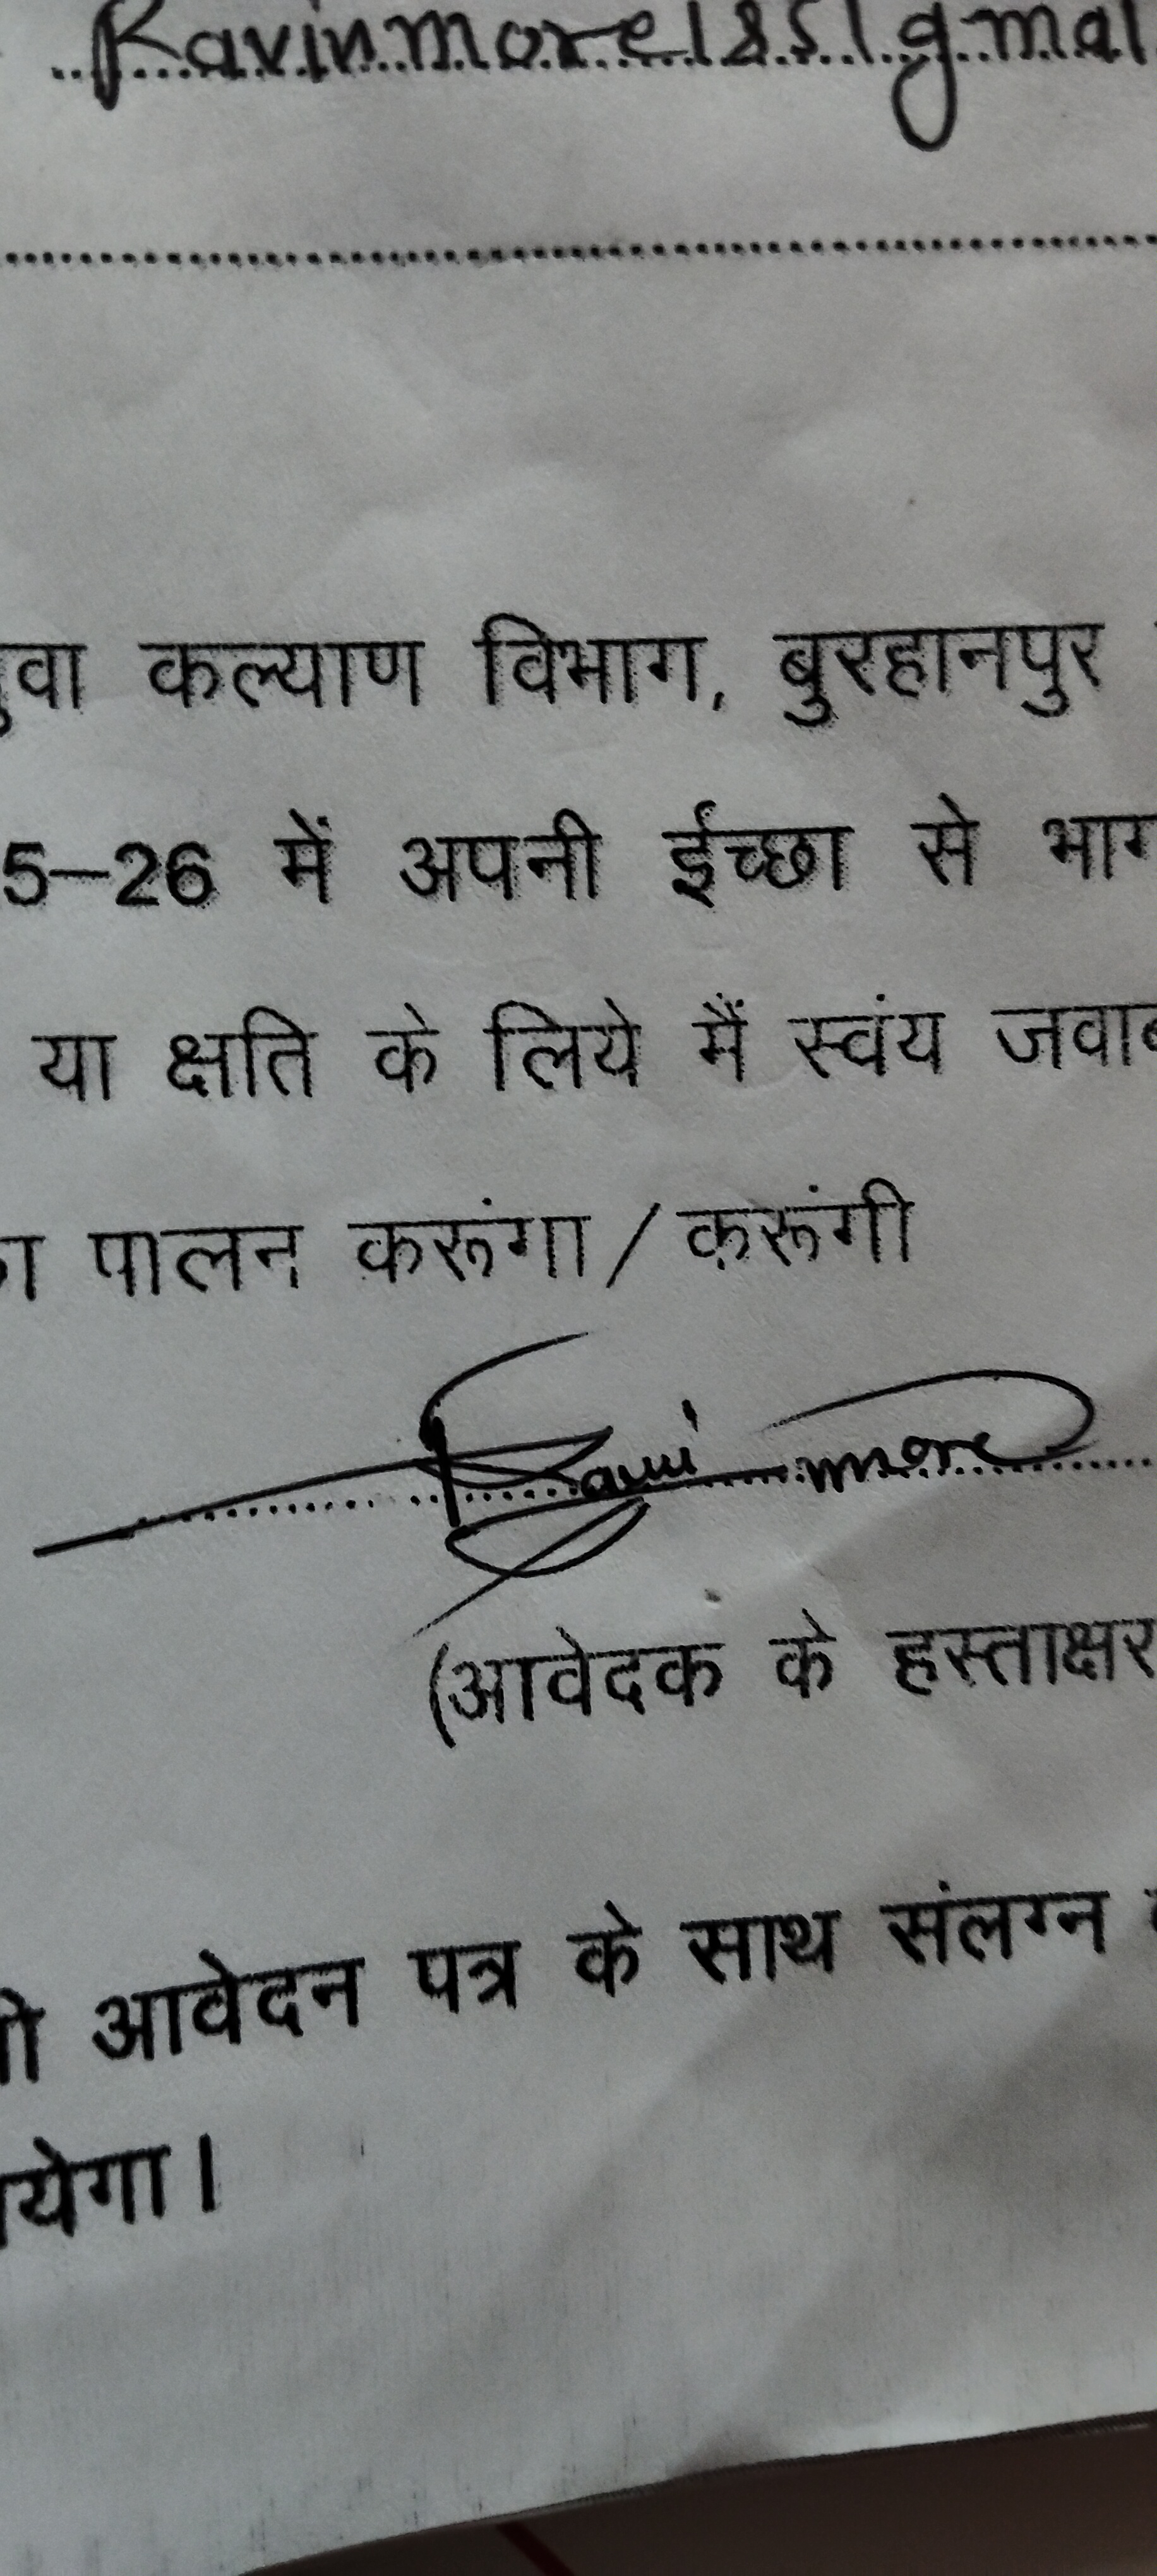 Ravinmore1851gmal
युवा कल्याण विभाग, बुरहानपुर
5–26 में अपनी ईच्छा से भाग
या क्षति के लिये मैं स्वंय जवाब
का पालन करूंगा / करूंगी
Ravi more
(आवेदक के हस्ताक्षर
आवेदन पत्र के साथ संलग्न
येगा।